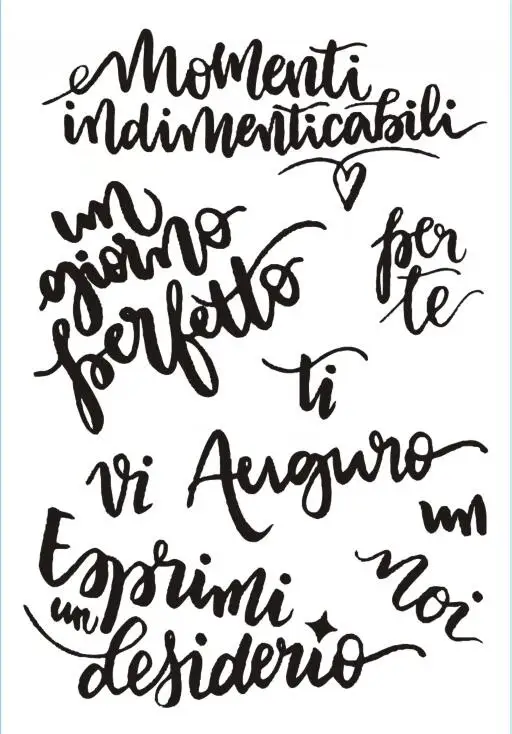 Momenti
indimenticabili
un
giorno
perfetto
per
te
ti
vi Auguro
un
Noi
Esprimi
un
desiderio